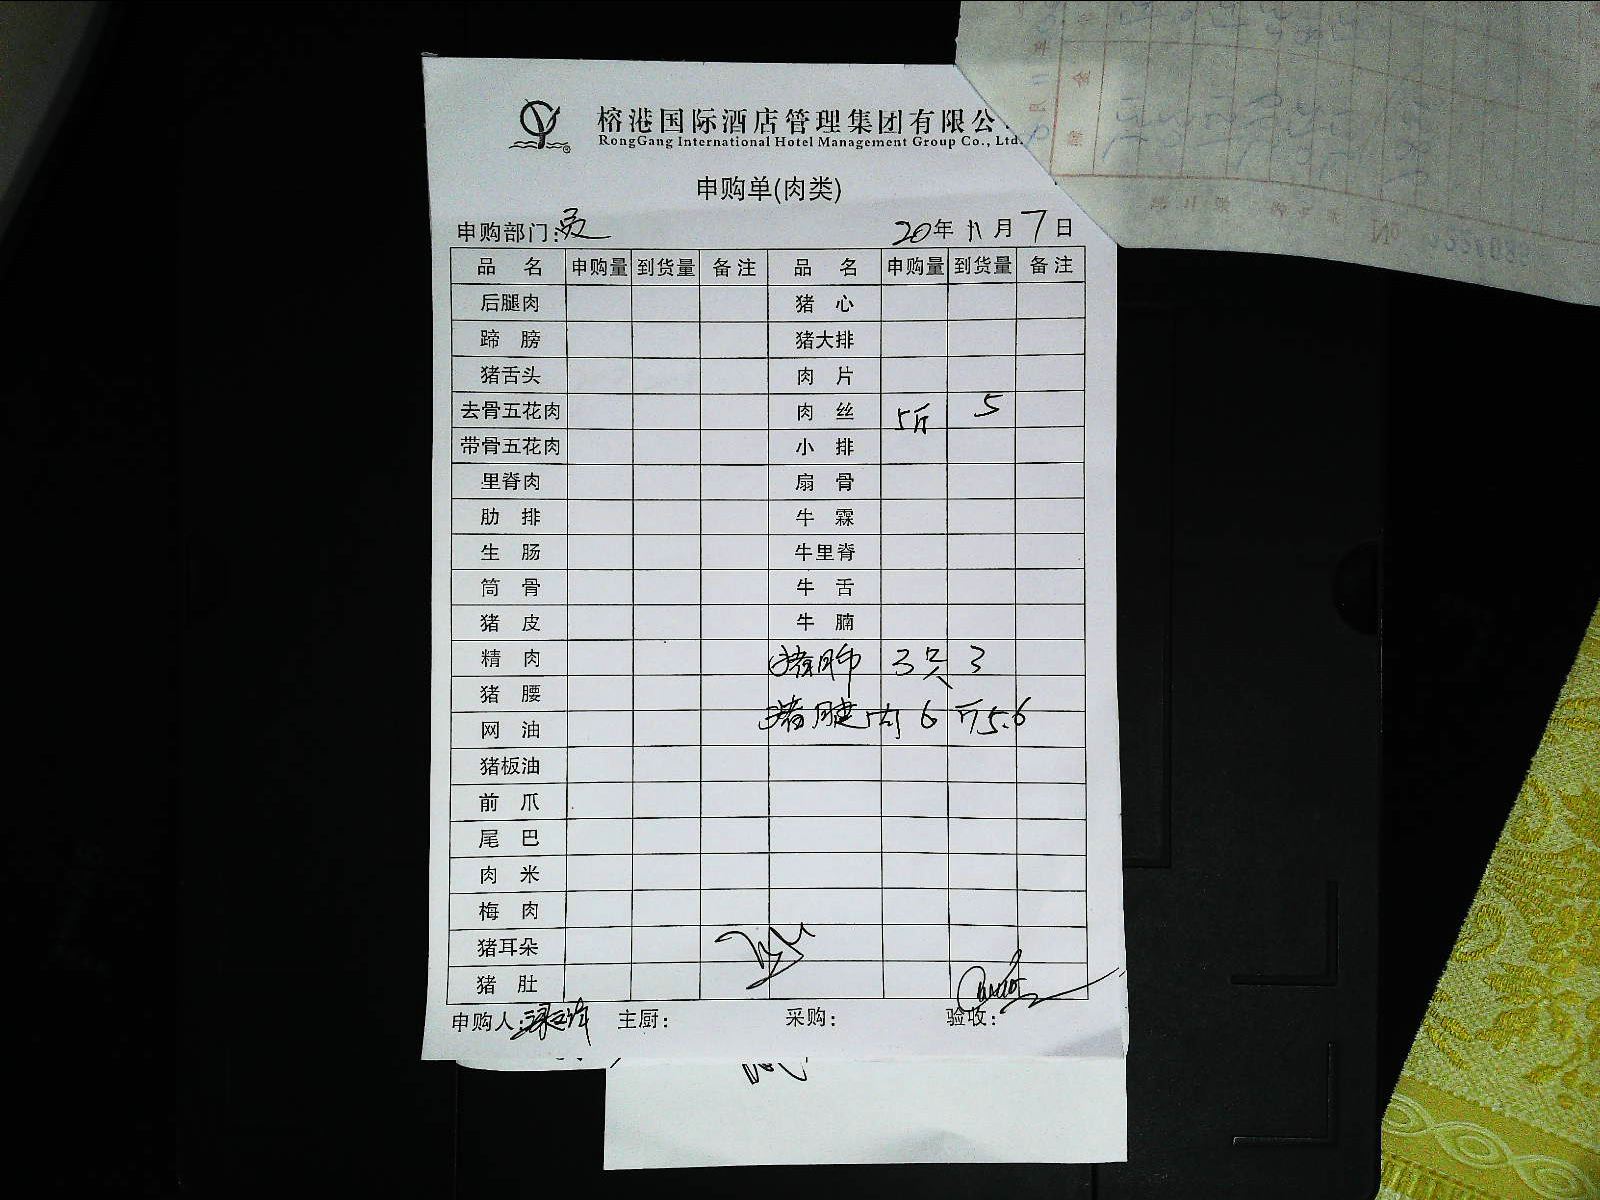 榕港国际酒店管理集团有限公
RongGang International Hotel Management Group Co., Ltd.
申购单(肉类)
申购部门:
20年 11月 7日
品 名 申购量 到货量 备注 品 名 申购量 到货量 备注
后腿肉 猪 心
蹄 膀 猪大排
猪舌头 肉 片
去骨五花肉 肉 丝 5斤 5
带骨五花肉 小 排
里脊肉 扇 骨
肋 排 牛 霖
生 肠 牛里脊
筒 骨 牛 舌
猪 皮 牛 腩
精 肉 猪 3只 3
猪 腰 猪腱肉 6斤 5.6
网 油
猪板油
前 爪
尾 巴
肉 米
梅 肉
猪耳朵
猪 肚
申购人: 主厨: 采购: 验收: